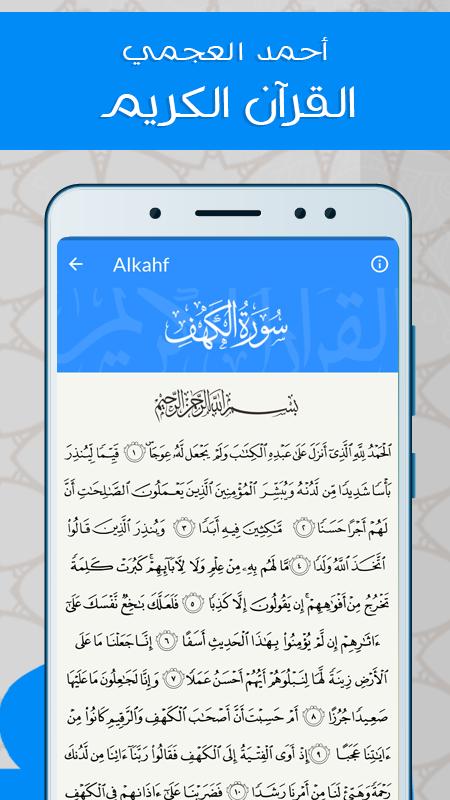 أحمد العجمي
القرآن الكريم
Alkahf
سُورَةُ الكَهْفِ
بِسْمِ اللَّهِ الرَّحْمَٰنِ الرَّحِيمِ
الْحَمْدُ لِلَّهِ الَّذِي أَنزَلَ عَلَىٰ عَبْدِهِ الْكِتَابَ وَلَمْ يَجْعَل لَّهُ عِوَجًا ۜ ١ قَيِّمًا لِّيُنذِرَ
بَأْسًا شَدِيدًا مِّن لَّدُنْهُ وَيُبَشِّرَ الْمُؤْمِنِينَ الَّذِينَ يَعْمَلُونَ الصَّالِحَاتِ أَنَّ
لَهُمْ أَجْرًا حَسَنًا ٢ مَّاكِثِينَ فِيهِ أَبَدًا ٣ وَيُنذِرَ الَّذِينَ قَالُوا
اتَّخَذَ اللَّهُ وَلَدًا ٤ مَّا لَهُم بِهِ مِنْ عِلْمٍ وَلَا لِآبَائِهِمْ ۚ كَبُرَتْ كَلِمَةً
تَخْرُجُ مِنْ أَفْوَاهِهِمْ ۚ إِن يَقُولُونَ إِلَّا كَذِبًا ٥ فَلَعَلَّكَ بَاخِعٌ نَّفْسَكَ عَلَىٰ
ءَاثَارِهِمْ إِن لَّمْ يُؤْمِنُوا بِهَٰذَا الْحَدِيثِ أَسَفًا ٦ إِنَّا جَعَلْنَا مَا عَلَى
الْأَرْضِ زِينَةً لَّهَا لِنَبْلُوَهُمْ أَيُّهُمْ أَحْسَنُ عَمَلًا ٧ وَإِنَّا لَجَاعِلُونَ مَا عَلَيْهَا
صَعِيدًا جُرُزًا ٨ أَمْ حَسِبْتَ أَنَّ أَصْحَابَ الْكَهْفِ وَالرَّقِيمِ كَانُوا مِنْ
ءَايَاتِنَا عَجَبًا ٩ إِذْ أَوَى الْفِتْيَةُ إِلَى الْكَهْفِ فَقَالُوا رَبَّنَا ءَاتِنَا مِن لَّدُنكَ
رَحْمَةً وَهَيِّئْ لَنَا مِنْ أَمْرِنَا رَشَدًا ١٠ فَضَرَبْنَا عَلَىٰ ءَاذَانِهِمْ فِي الْكَهْفِ